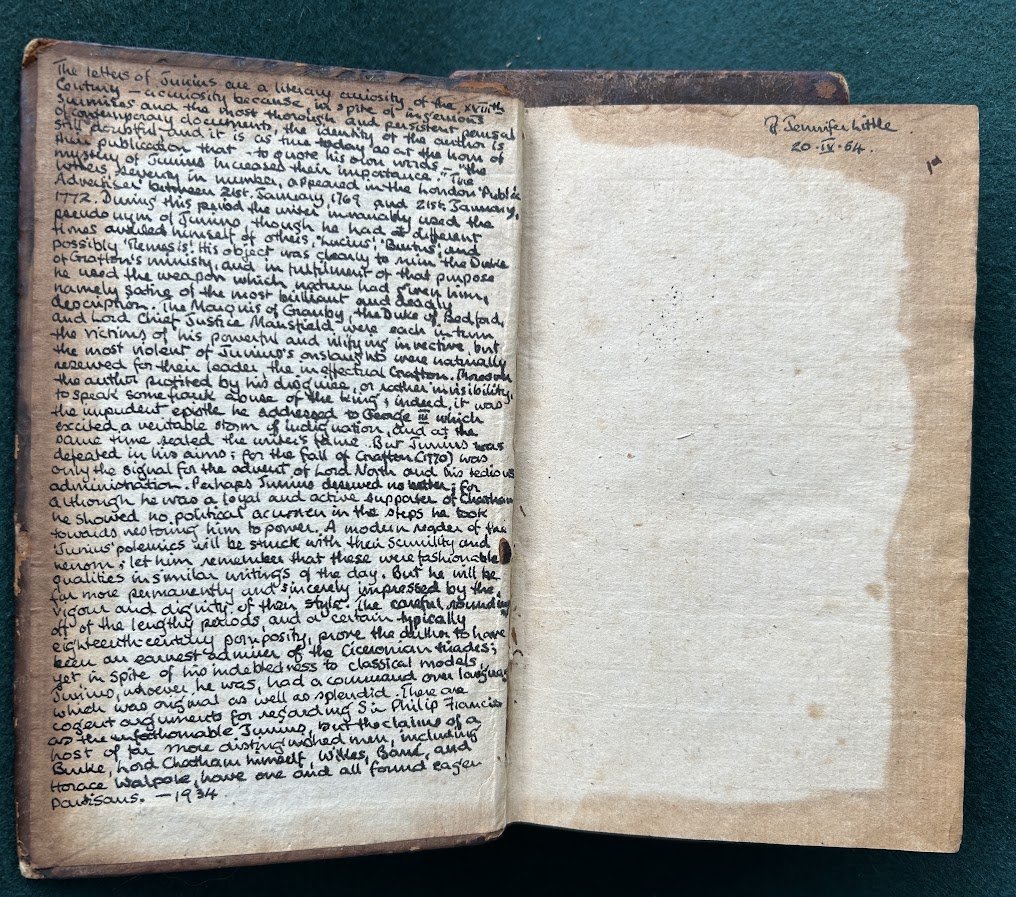 The letters of Junius are a literary curiosity of the XVIIIth
Century – a curiosity because, in spite of ingenious
surmises and the most thorough and persistent perusal
of contemporary documents, the identity of the author is
still doubtful, and it is as true today as at the hour of
their publication that – to quote his own words – "the
mystery of Junius increases their importance". The
letters, seventy in number, appeared in the London 'Public
Advertiser' between 21st. January 1769 and 21st. January,
1772. During this period the writer invariably used the
pseudonym of Junius though he had at different
times availed himself of others, 'Lucius', 'Brutus', and
possibly 'Nemesis'. His object was clearly to ruin the Duke
of Grafton's ministry, and in fulfilment of that purpose
he used the weapon which nature had given him,
namely satire of the most brilliant and deadly
description. The Marquis of Granby, the Duke of Bedford,
and Lord Chief Justice Mansfield were each in turn
the victims of his powerful and vilifying invective, but
the most violent of Junius's onslaughts were naturally
reserved for their leader, the ineffectual Grafton. Moreover
the author profited by his disguise, or rather invisibility,
to speak some frank abuse of the king; indeed, it was
the impudent epistle he addressed to George III which
excited a veritable storm of indignation, and at the
same time sealed the writer's fame. But Junius was
defeated in his aims; for the fall of Grafton (1770) was
only the signal for the advent of Lord North and his tedious
administration. Perhaps Junius deserved no better; for
although he was a loyal and active supporter of Chatham
he showed no political acumen in the steps he took
towards restoring him to power. A modern reader of the
'Junius' polemics will be struck with their scurrility and
venom; let him remember that these were fashionable
qualities in similar writings of the day. But he will be
far more permanently and sincerely impressed by the
vigour and dignity of their style. The careful rounding
off of the lengthy periods, and a certain typically
eighteenth-century pomposity, prove the author to have
been an earnest admirer of the Ciceronian tirades;
yet in spite of his indebtedness to classical models,
Junius, whoever he was, had a command over language
which was original as well as splendid. There are
cogent arguments for regarding Sir Philip Francis
as the unfathomable Junius, but the claims of a
host of far more distinguished men, including
Burke, Lord Chatham himself, Wilkes, Barré, and
Horace Walpole, have one and all found eager
partisans. – 1934
Jennifer Little
20·IX·64.